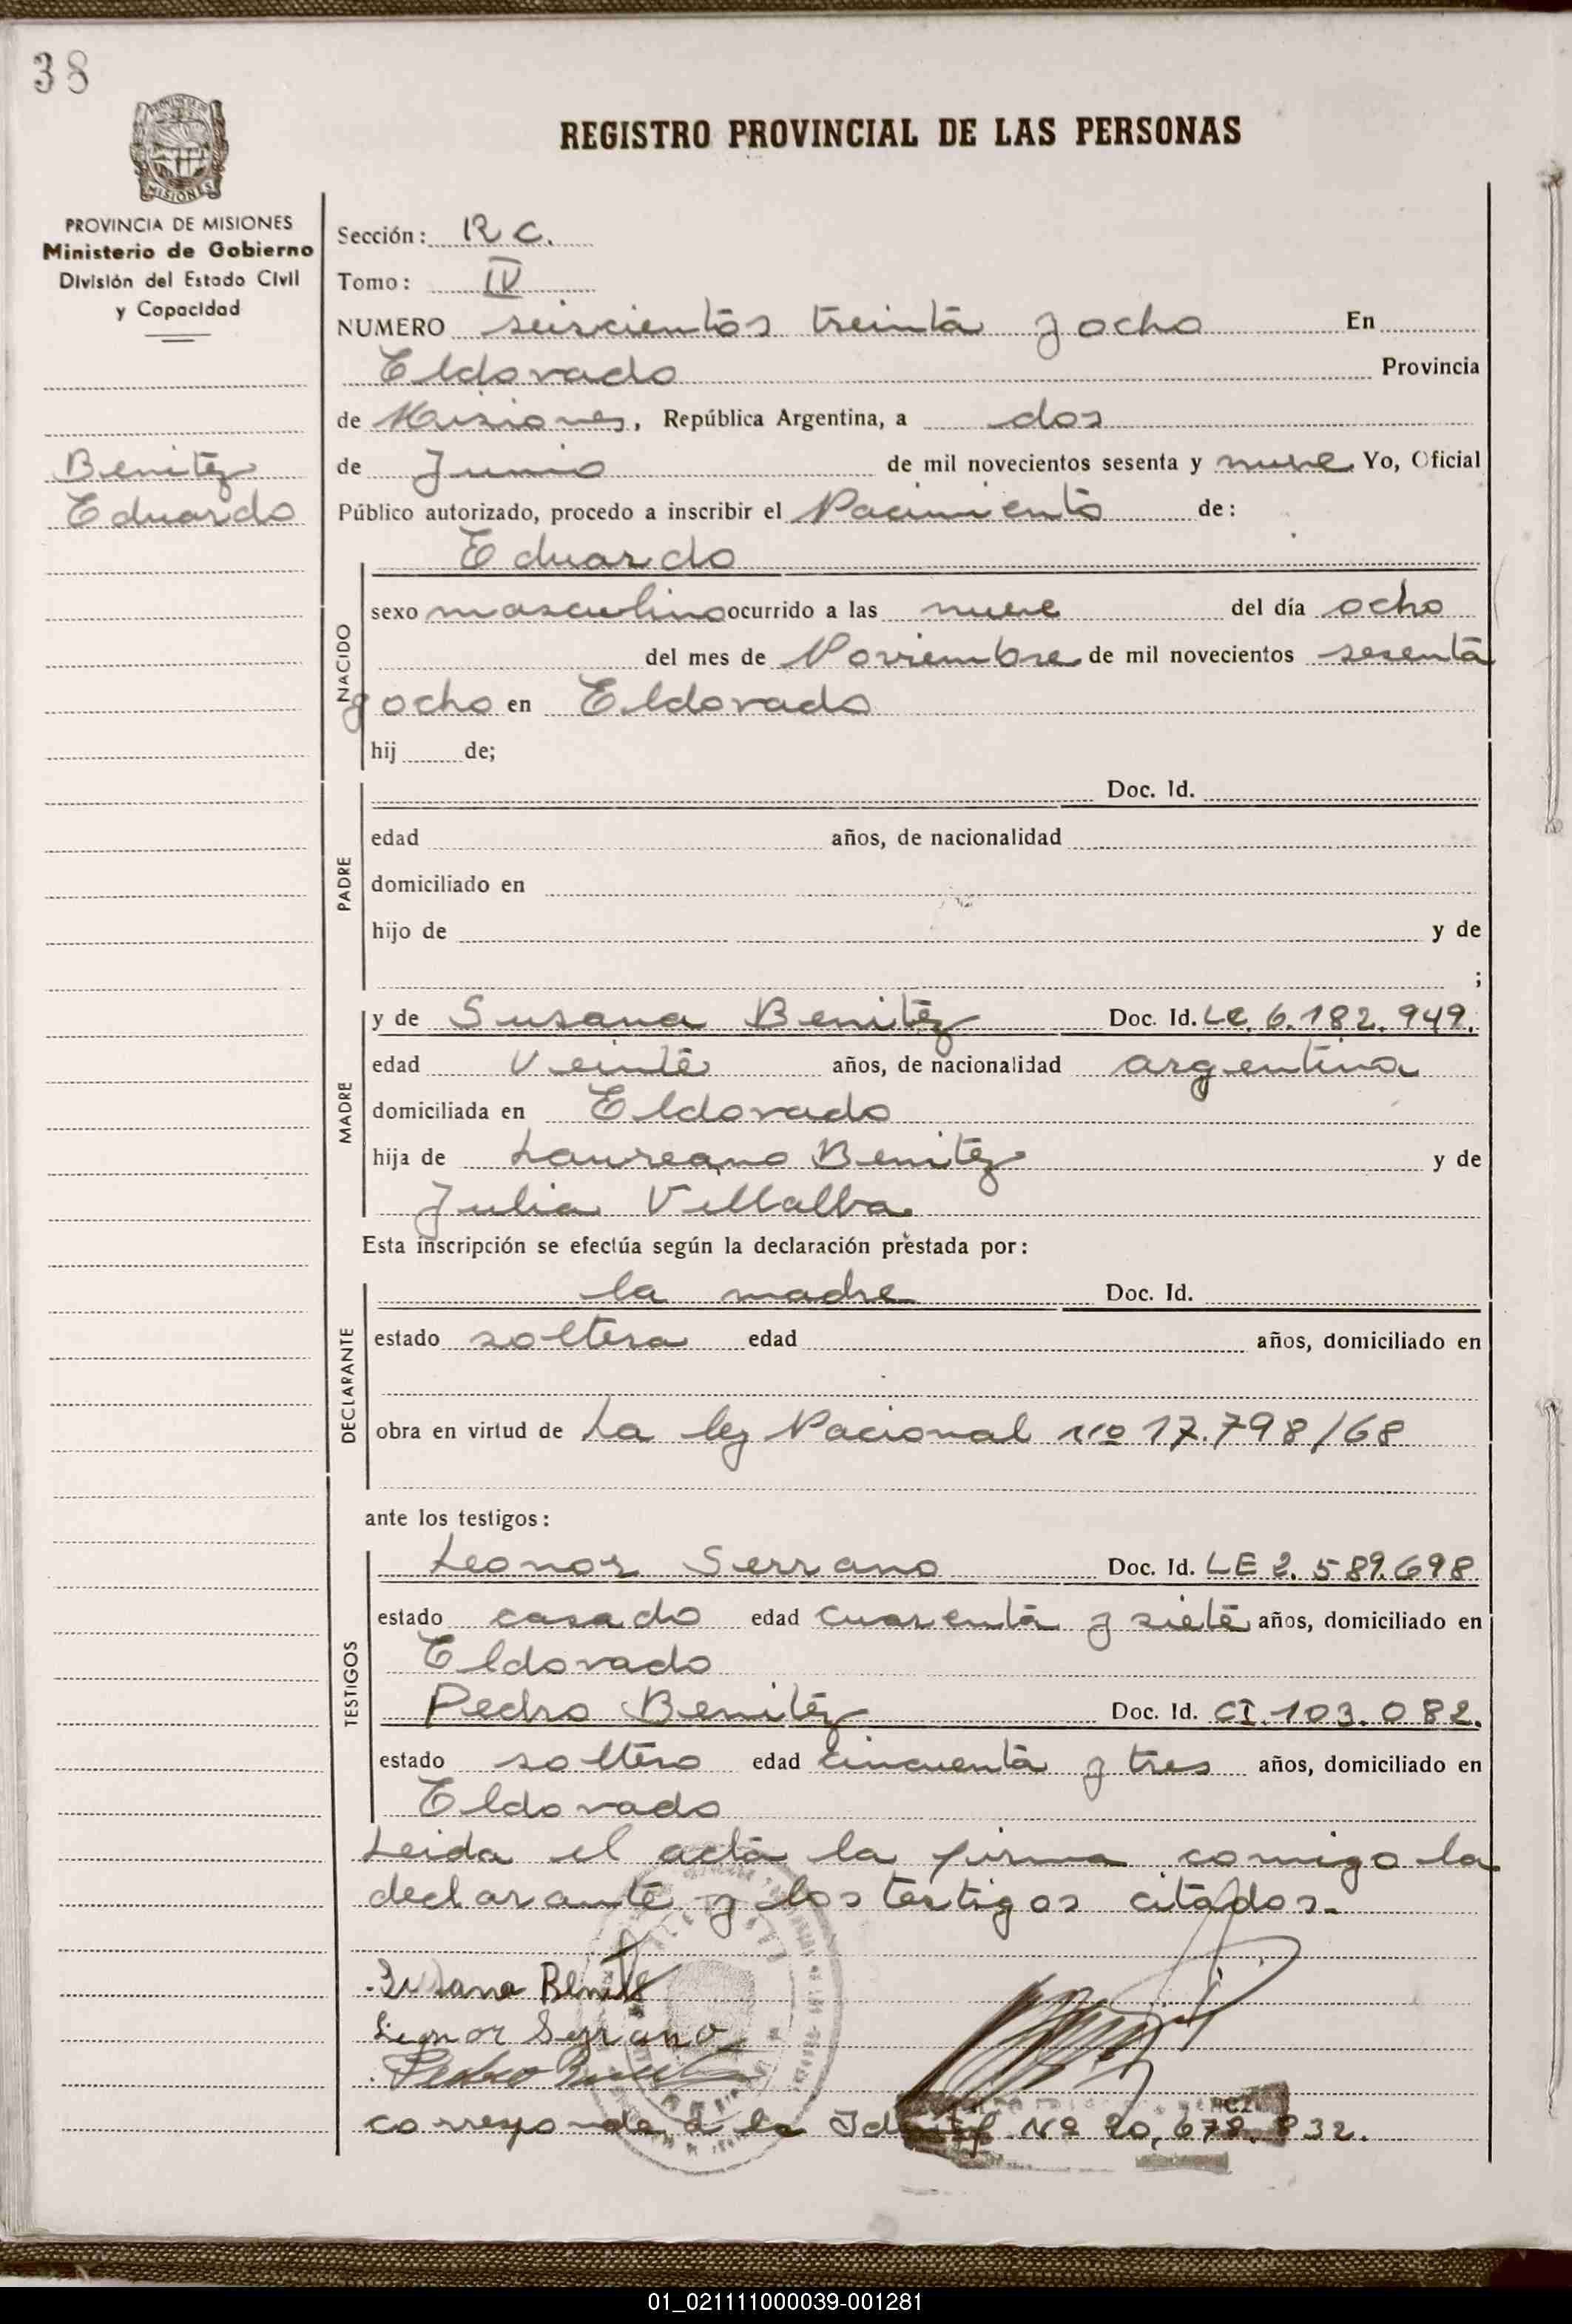 38
REGISTRO PROVINCIAL DE LAS PERSONAS
MISIONES
PROVINCIA DE MISIONES
Ministerio de Gobierno
División del Estado Civil
y Capacidad
Benitez
Eduardo
Sección: R C.
Tomo: IV
NUMERO seiscientos treinta y ocho En
Eldorado Provincia
de Misiones, República Argentina, a dos
de Junio de mil novecientos sesenta y nueve Yo, Oficial
Público autorizado, procedo a inscribir el Nacimiento de:
Eduardo
NACIDO
sexo masculino ocurrido a las nueve del día ocho
del mes de Noviembre de mil novecientos sesenta
y ocho en Eldorado
hij de;
PADRE
Doc. Id.
edad años, de nacionalidad
domiciliado en
hijo de y de
;
MADRE
y de Susana Benitez Doc. Id. LC. 6.182.949.
edad Veinte años, de nacionalidad argentina
domiciliada en Eldorado
hija de Laureano Benitez y de
Julia Villalba
Esta inscripción se efectúa según la declaración prestada por:
DECLARANTE
la madre Doc. Id.
estado soltera edad años, domiciliado en
obra en virtud de La ley Nacional Nº 17.798/68
ante los testigos:
TESTIGOS
Leonor Serrano Doc. Id. LE 2.589.698
estado casado edad cuarenta y siete años, domiciliado en
Eldorado
Pedro Benitez Doc. Id. CI. 103.082.
estado soltero edad cincuenta y tres años, domiciliado en
Eldorado
Leida el acta la firma comigo la
declarante y los testigos citados.
Susana Benitez
Leonor Serrano
Pedro
corresponde a la Nº 20,678.832.
01_021111000039-001281